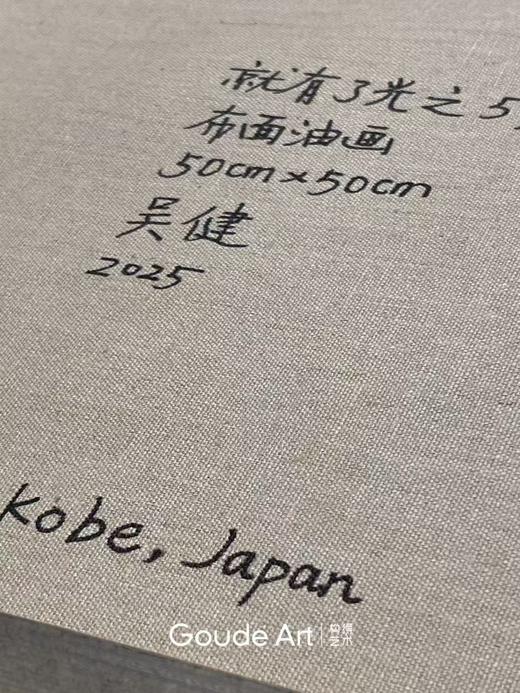 就有了光之 5
布面油画
50cm×50cm
吴健
2025
Kobe, Japan
Goude Art